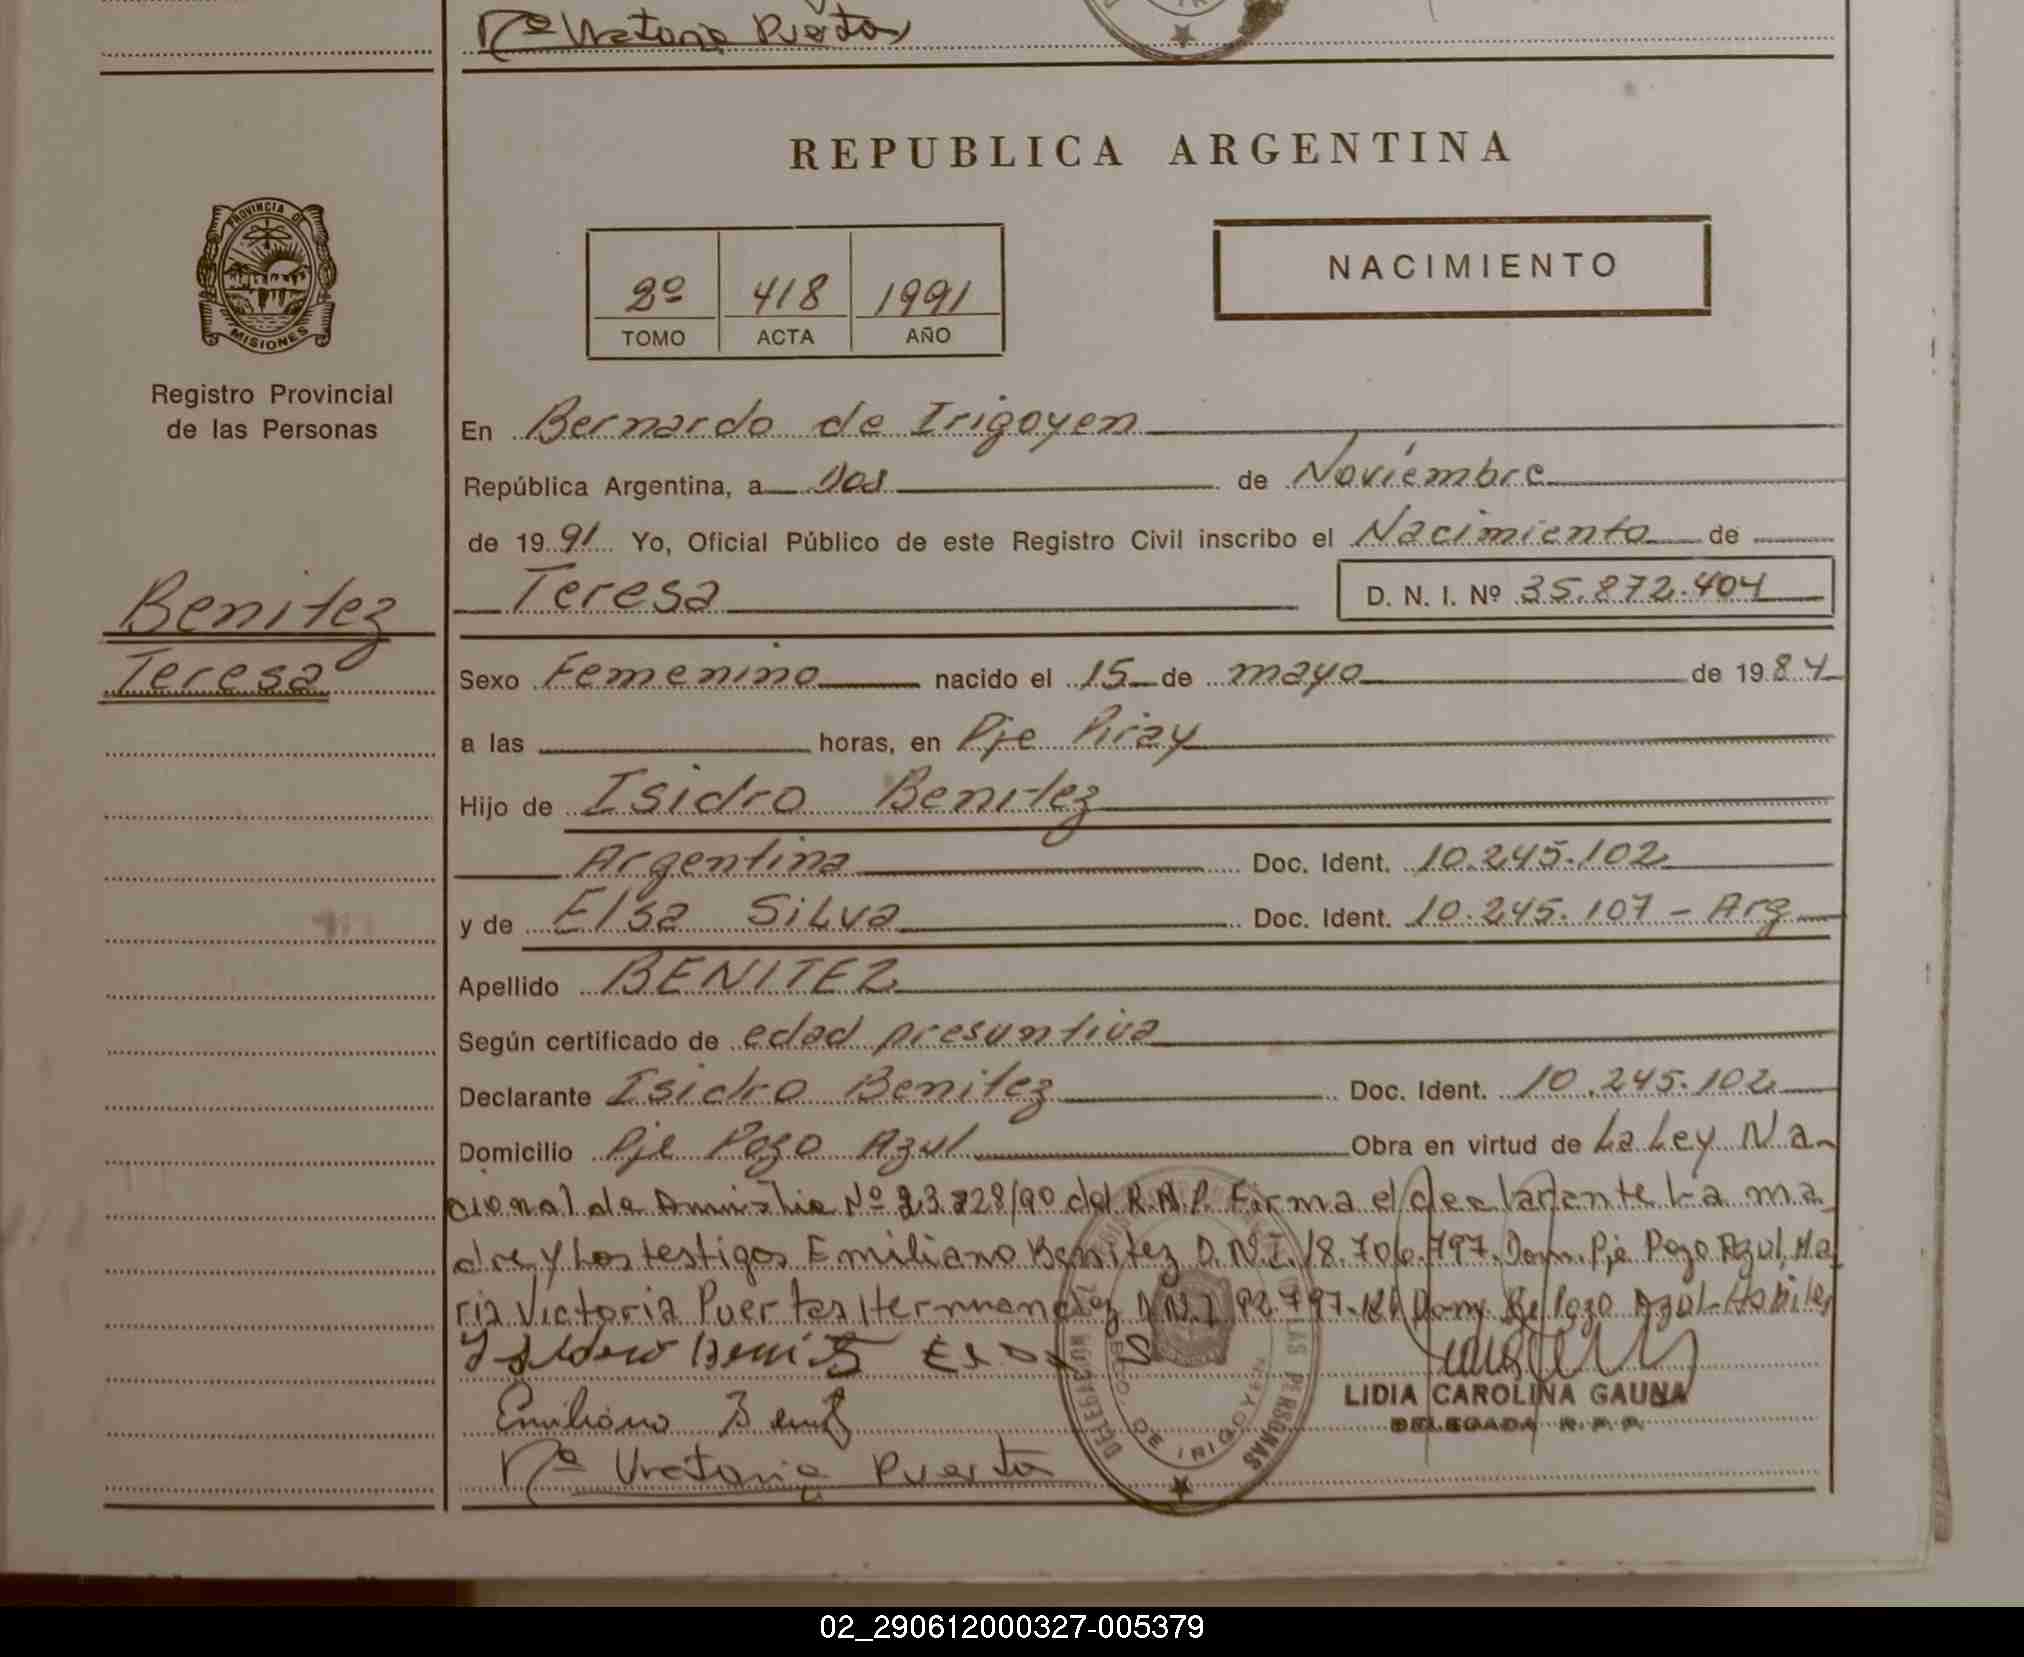 Mª Victoria Puertas
REPUBLICA ARGENTINA
PROVINCIA DE
MISIONES
Registro Provincial
de las Personas
2º 418 1991
TOMO ACTA AÑO
NACIMIENTO
En Bernardo de Irigoyen
República Argentina, a Dos de Noviembre
de 1991 Yo, Oficial Público de este Registro Civil inscribo el Nacimiento de
Teresa D. N. I. Nº 35.872.404
Benitez
Teresa
Sexo Femenino nacido el 15 de mayo de 1984
a las horas, en Pje Piray
Hijo de Isidro Benitez
Argentina Doc. Ident. 10.245.102
y de Elsa Silva Doc. Ident. 10.245.107 - Arg
Apellido BENITEZ
Según certificado de edad presuntiva
Declarante Isidro Benitez Doc. Ident. 10.245.102
Domicilio Pje Pozo Azul Obra en virtud de La Ley Na-
cional de Amnistia Nº 23.828/90 del R.N.P. Firma el declarante La ma-
dre y Los testigos Emiliano Benitez D.N.I. 18.706.797. Dom. Pje Pozo Azul, Ma-
ria Victoria Puertas Hernandez D.N.I. 92.797. Dom. Pje Pozo Azul-Habiles
Isidero Benitez
Emiliano Benitez
Mª Victoria Puerta
DELEGACION
DE LAS PERSONAS
BDO. DE IRIGOYEN
LIDIA CAROLINA GAUNA
DELEGADA R.P.P.
02_290612000327-005379